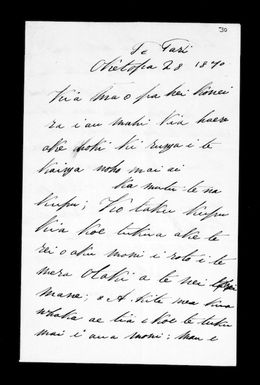 30
Te Tari
Oketopa 28 1870
Kia Ma o pa kei konei
ra i au mahi Kia haere
ake hoki ki runga i te
kainga noho mai ai
Ka mutu te na
kupu; Ko taku kupu
kia koe tukua ake te
rei o aku moni i roto i te
mera Otaki a te nei
mane; A kite mea kua
whaka ae tia e koe te tuku
mai i aua moni; Mau e